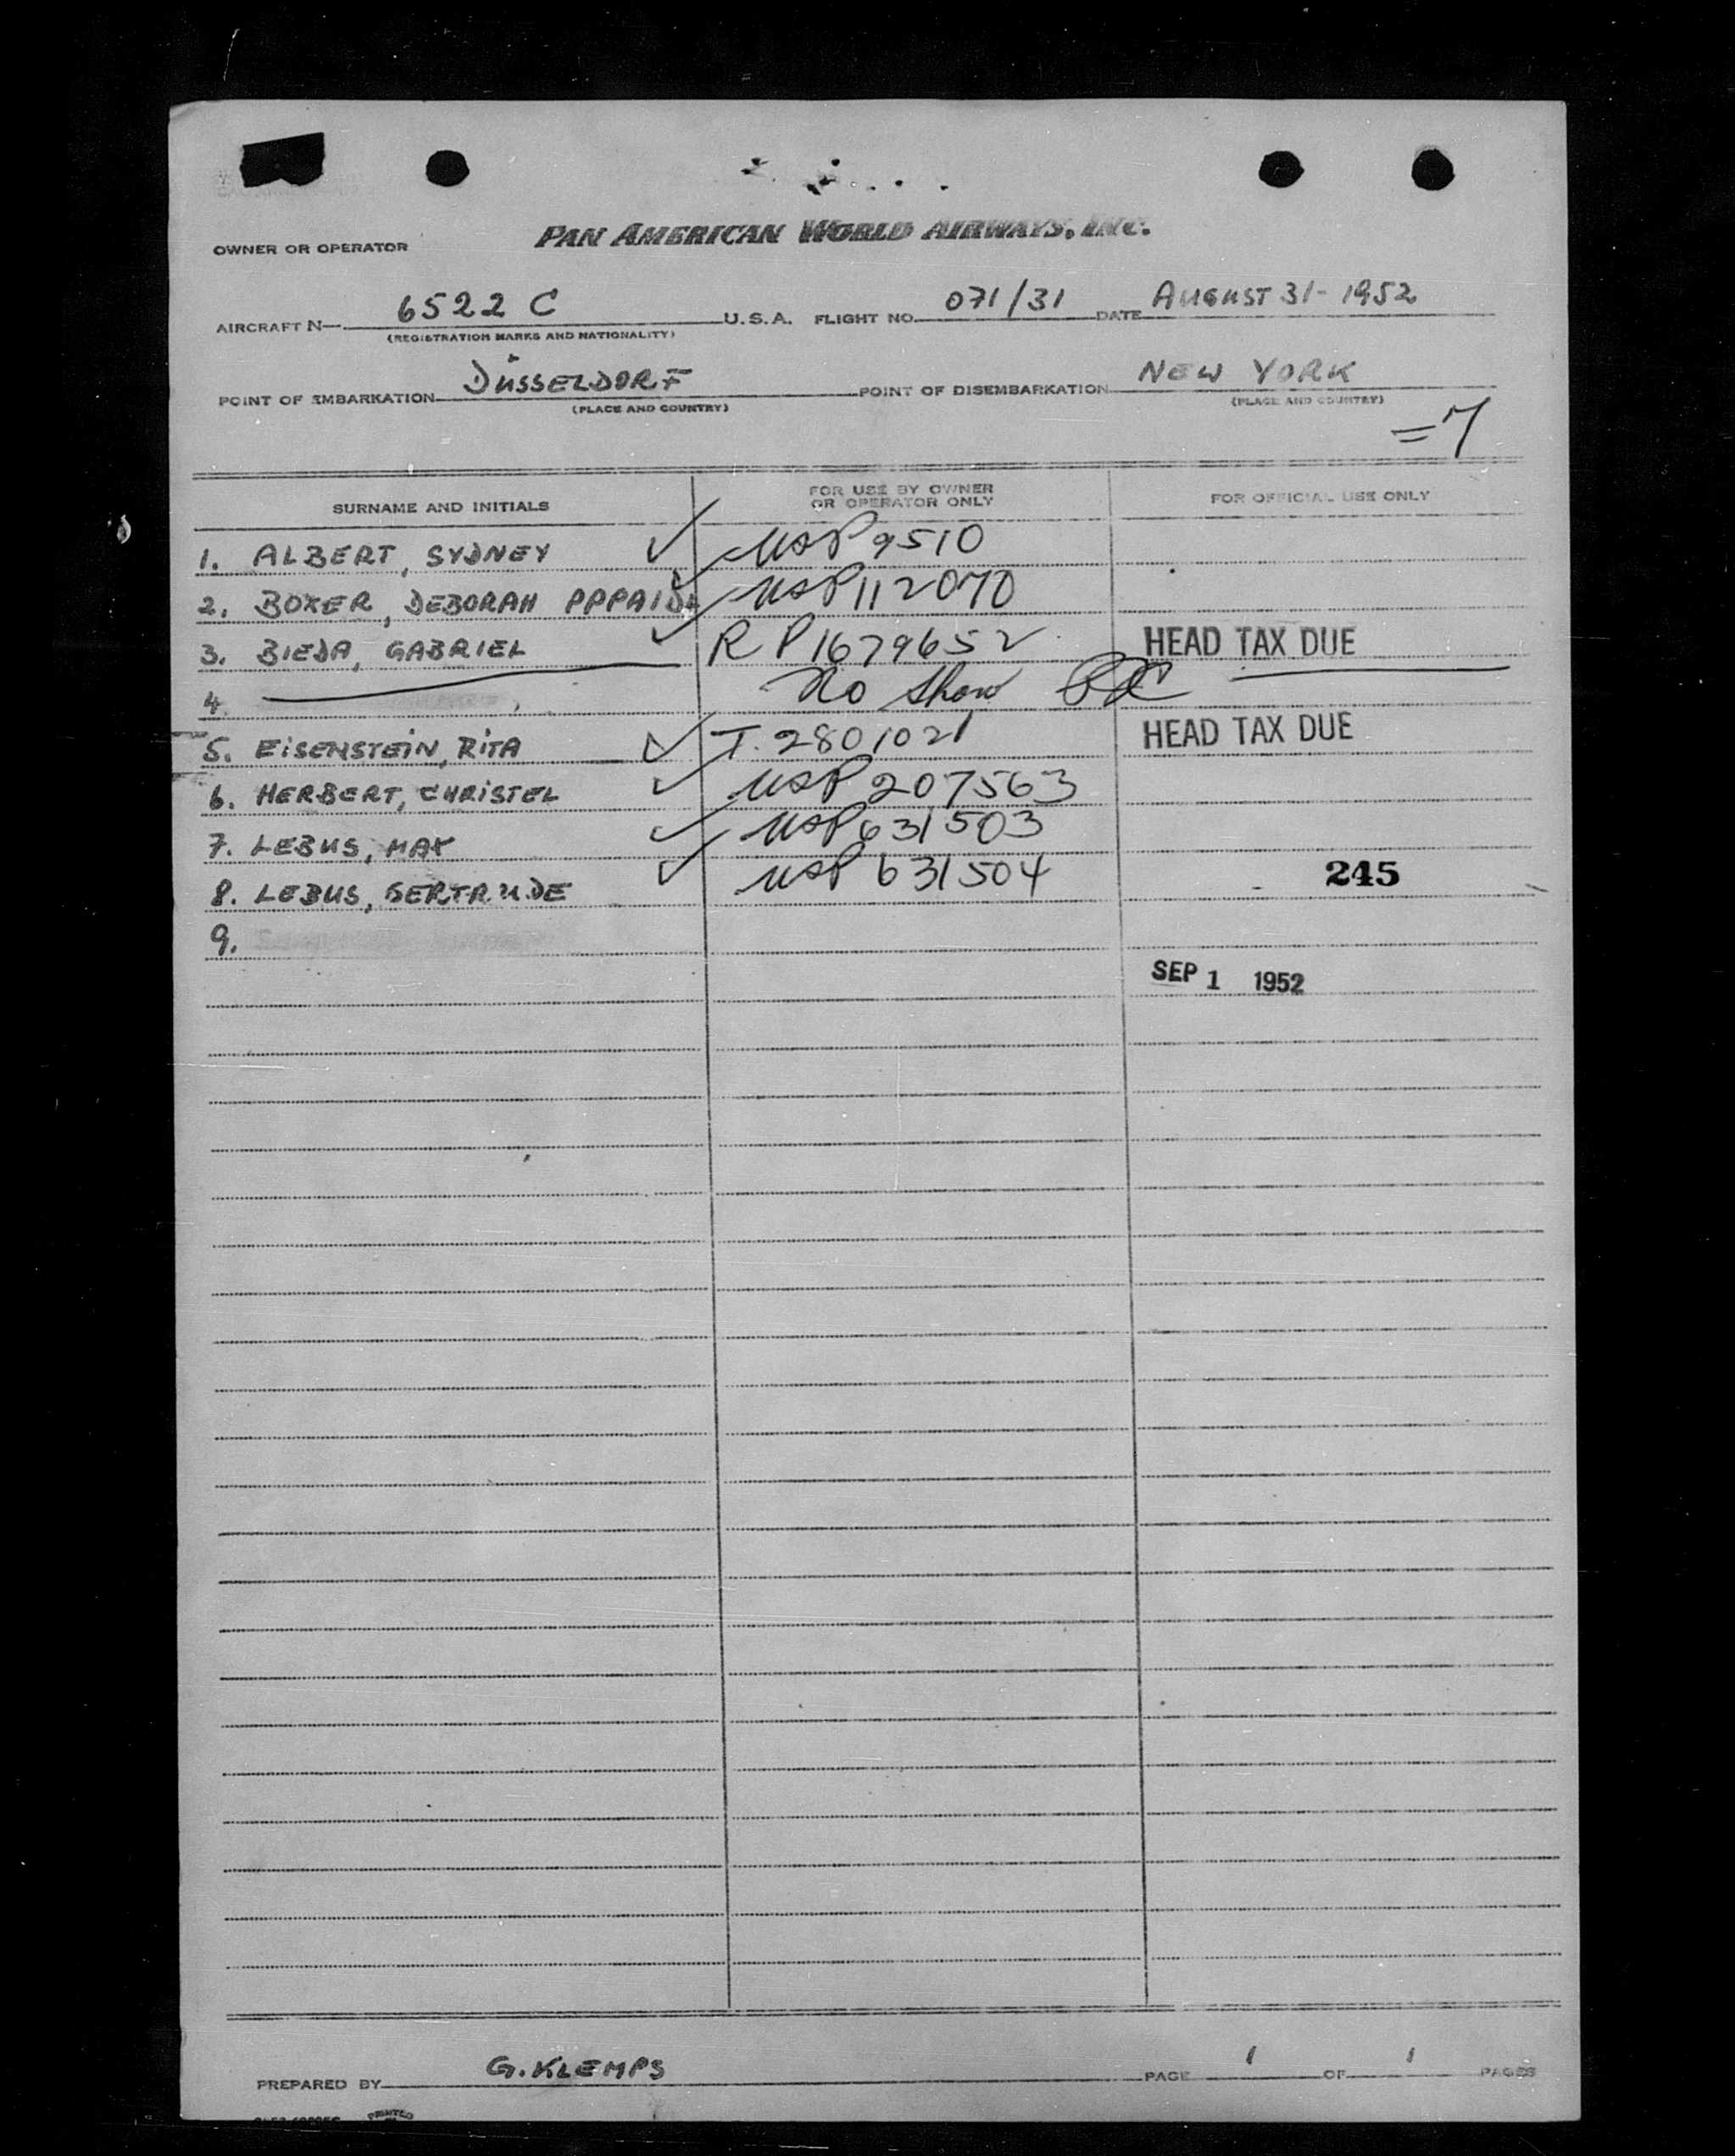 PAN AMERICAN WORLD AIRWAYS, INC.
OWNER OR OPERATOR
AIRCRAFT N— 6522 C U.S.A. FLIGHT NO. 071/31 DATE AUGUST 31- 1952
(REGISTRATION MARKS AND NATIONALITY)
POINT OF EMBARKATION DÜSSELDORF POINT OF DISEMBARKATION NEW YORK
(PLACE AND COUNTRY) (PLACE AND COUNTRY)
=7
SURNAME AND INITIALS FOR USE BY OWNER OR OPERATOR ONLY FOR OFFICIAL USE ONLY
1. ALBERT, SYDNEY ✓ USP 9510
2. BOXER, DEBORAH ✓ USP 112070
3. BIEDA, GABRIEL ✓ R P 1679652 HEAD TAX DUE
4. No Show
5. EISENSTEIN, RITA ✓ T. 2801021 HEAD TAX DUE
6. HERBERT, CHRISTEL ✓ USP 207563
7. LEBUS, MAX ✓ USP 631503
8. LEBUS, GERTRUDE ✓ USP 631504 245
9.
SEP 1 1952
PREPARED BY G. KLEMPS PAGE 1 OF 1 PAGES
PRINTED